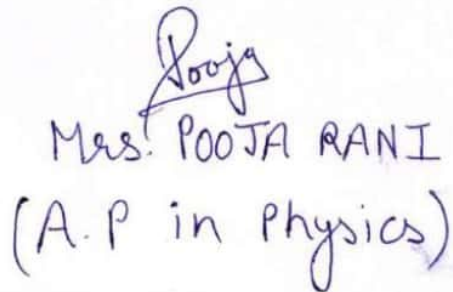 Pooja
Mrs. POOJA RANI
(A.P in Physics)